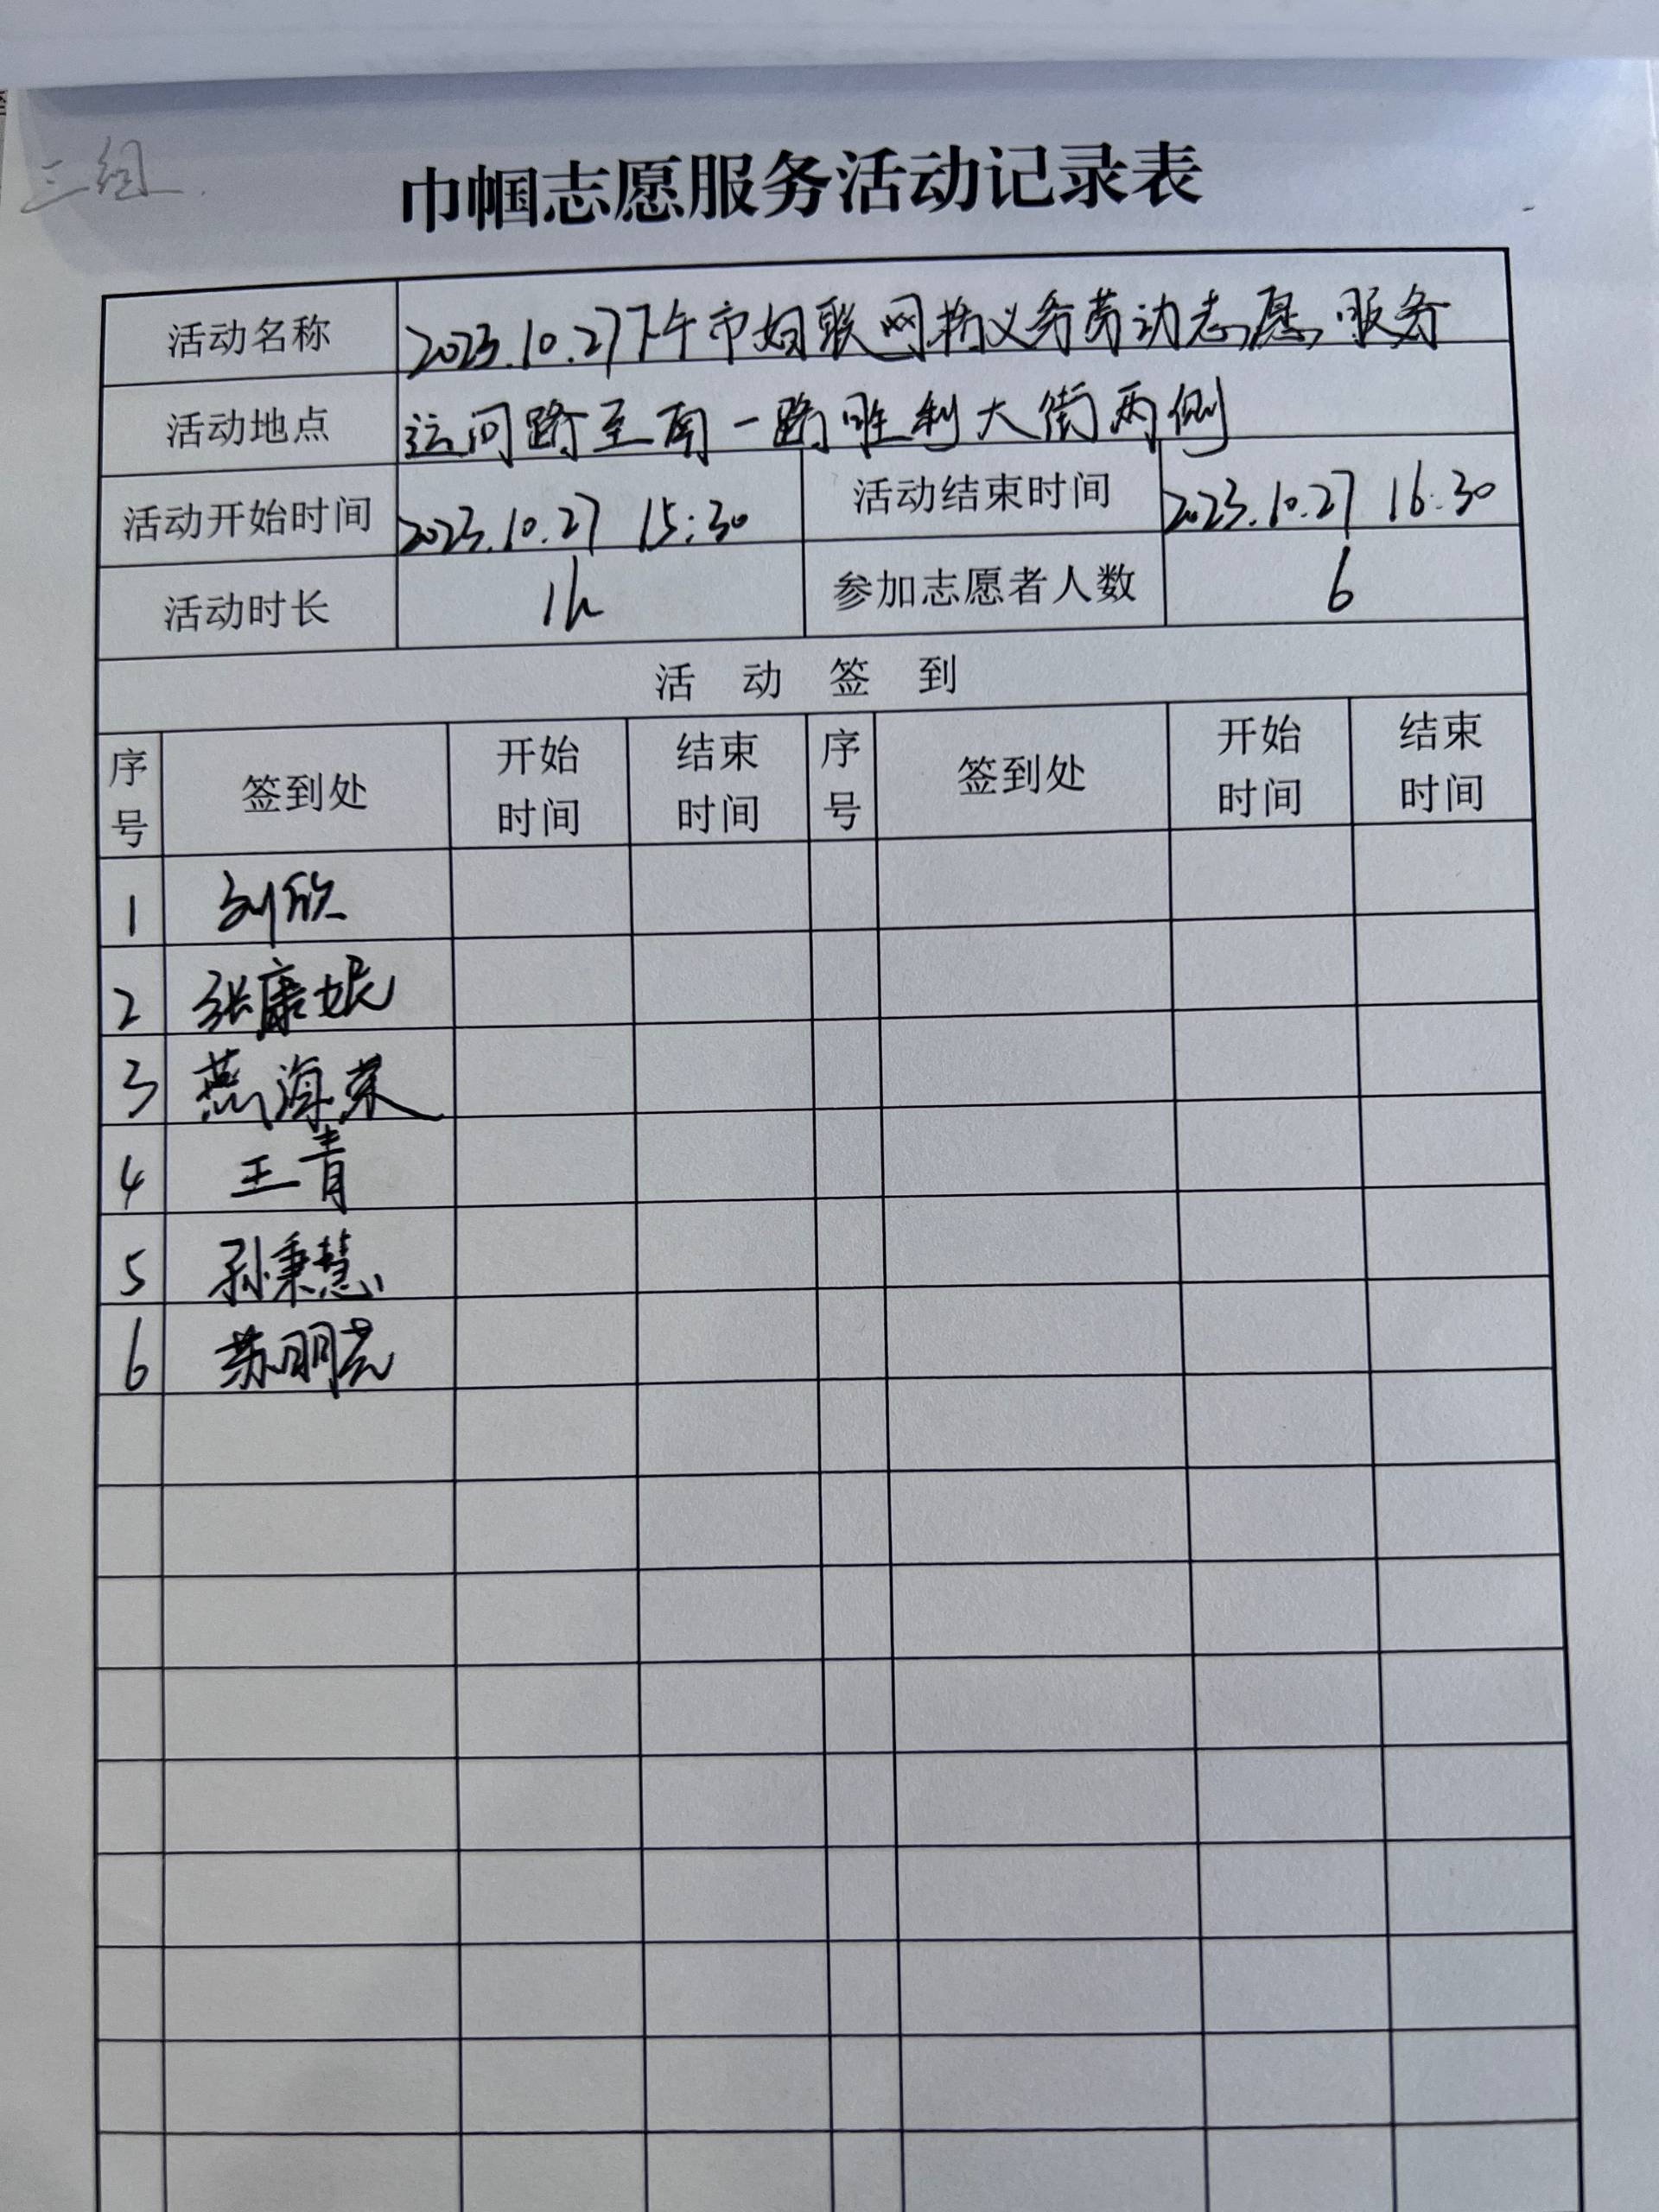 三组
巾帼志愿服务活动记录表
活动名称 2023.10.27下午市妇联网格义务劳动志愿服务
活动地点 运河路至南一路胜利大街两侧
活动开始时间 2023.10.27 15:30 活动结束时间 2023.10.27 16:30
活动时长 1h 参加志愿者人数 6
活动签到
序号 签到处 开始时间 结束时间 序号 签到处 开始时间 结束时间
1 刘欣
2 张康妮
3 燕海荣
4 王青
5 孙秉慧
6 苏明芸